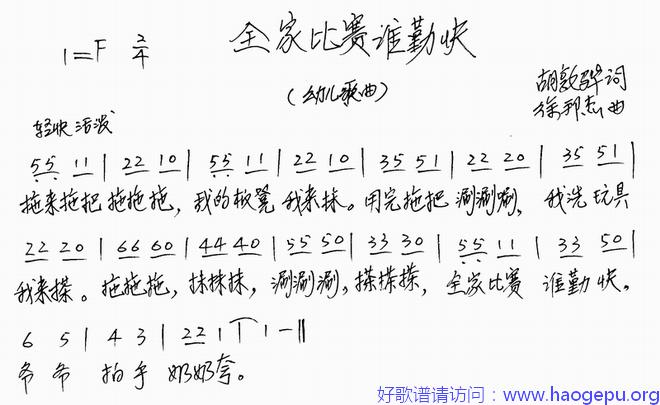 全家比赛谁勤快
1=F 2/4
(幼儿歌曲)
胡敦骅词
徐邦杰曲
轻快 活泼
55 11 | 22 10 | 55 11 | 22 10 | 35 51 | 22 20 | 35 51 |
拖来拖把 拖拖拖，我的板凳 我来抹。用完拖把 涮涮涮，我洗玩具
22 20 | 66 60 | 44 40 | 55 50 | 33 30 | 55 11 | 33 50 |
我来搽。拖拖拖，抹抹抹，涮涮涮，搽搽搽，全家比赛 谁勤快。
6 5 | 4 3 | 22 1 | 1 - ||
爷爷 拍手 奶奶夸。
好歌谱请访问：www.haogepu.org